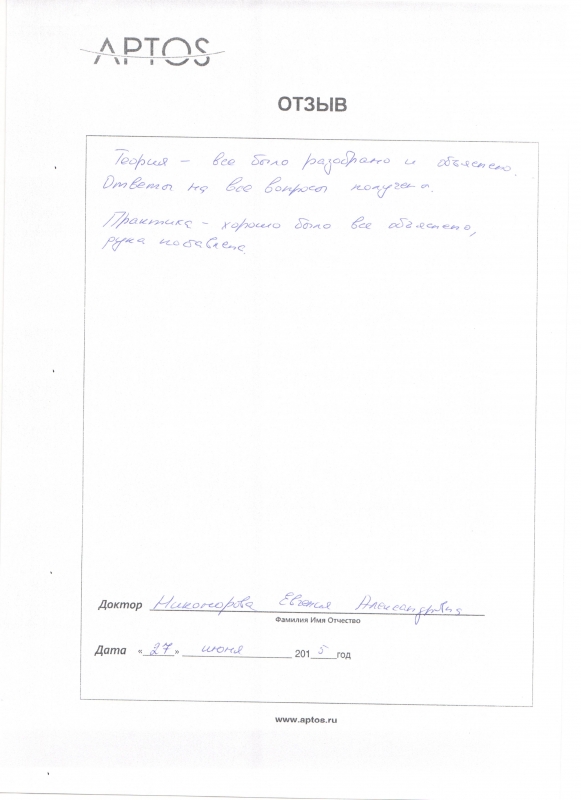 APTOS
ОТЗЫВ
Теория – все было разобрано и объяснено.
Ответы на все вопросы получены.
Практика – хорошо было все объяснено,
рука поставлена.
Доктор Никонорова Евгения Александровна
Фамилия Имя Отчество
Дата «27» июня 2015 год
www.aptos.ru